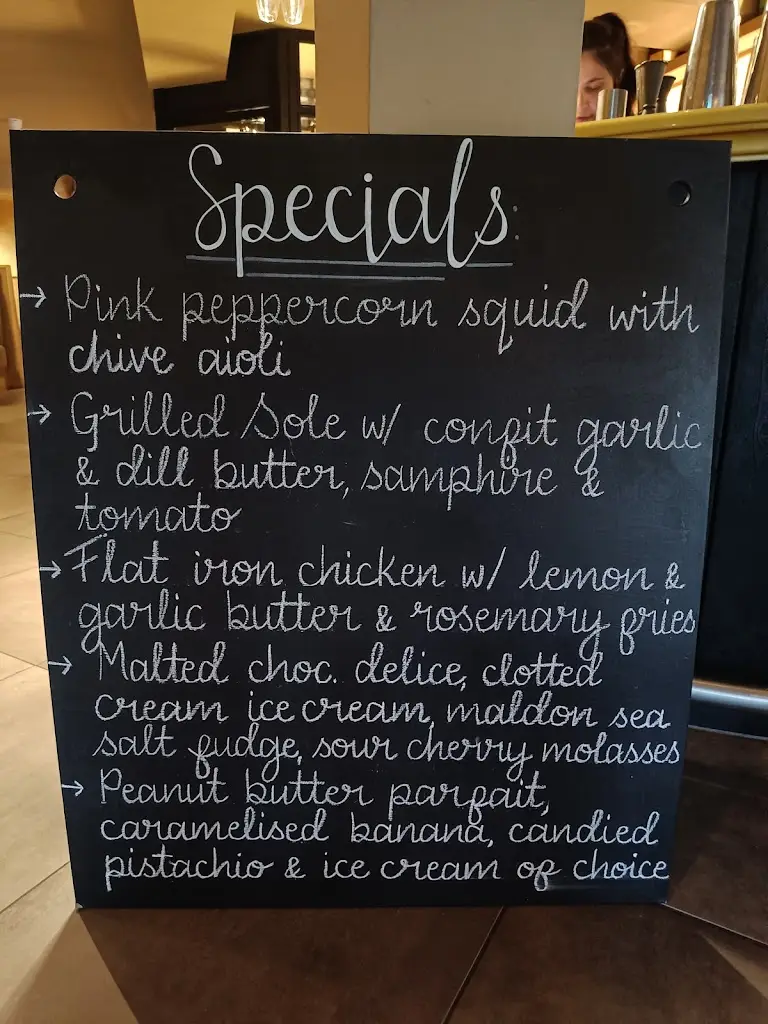 Specials:
→ Pink peppercorn squid with
chive aioli
→ Grilled Sole w/ confit garlic
& dill butter, samphire &
tomato
→ Flat iron chicken w/ lemon &
garlic butter & rosemary fries
→ Malted choc. delice, clotted
cream ice cream, maldon sea
salt fudge, sour cherry molasses
→ Peanut butter parfait,
caramelised banana, candied
pistachio & ice cream of choice